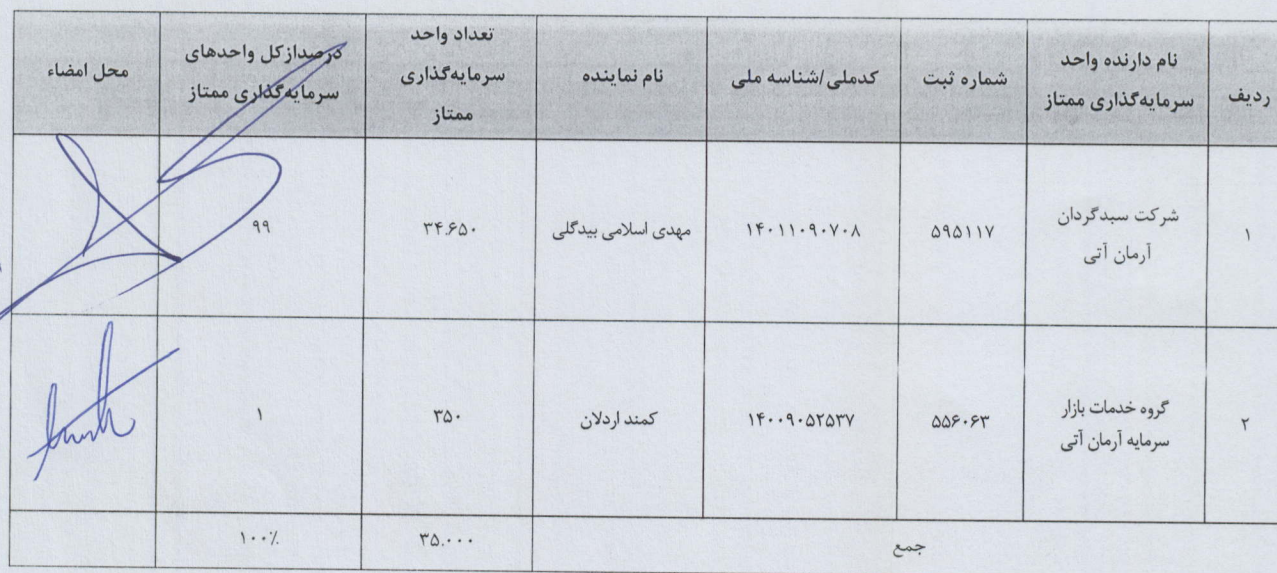 ردیف
نام دارنده واحد
سرمایه‌گذاری ممتاز
شماره ثبت
کدملی/شناسه ملی
نام نماینده
تعداد واحد
سرمایه‌گذاری
ممتاز
درصدازکل واحدهای
سرمایه‌گذاری ممتاز
محل امضاء
۱
شرکت سبدگردان
آرمان آتی
۵۹۵۱۱۷
۱۴۰۱۱۰۹۰۷۰۸
مهدی اسلامی بیدگلی
۳۴.۶۵۰
۹۹
۲
گروه خدمات بازار
سرمایه آرمان آتی
۵۵۶۰۶۳
۱۴۰۰۹۰۵۲۵۳۷
کمند اردلان
۳۵۰
۱
جمع
۳۵.۰۰۰
۱۰۰٪